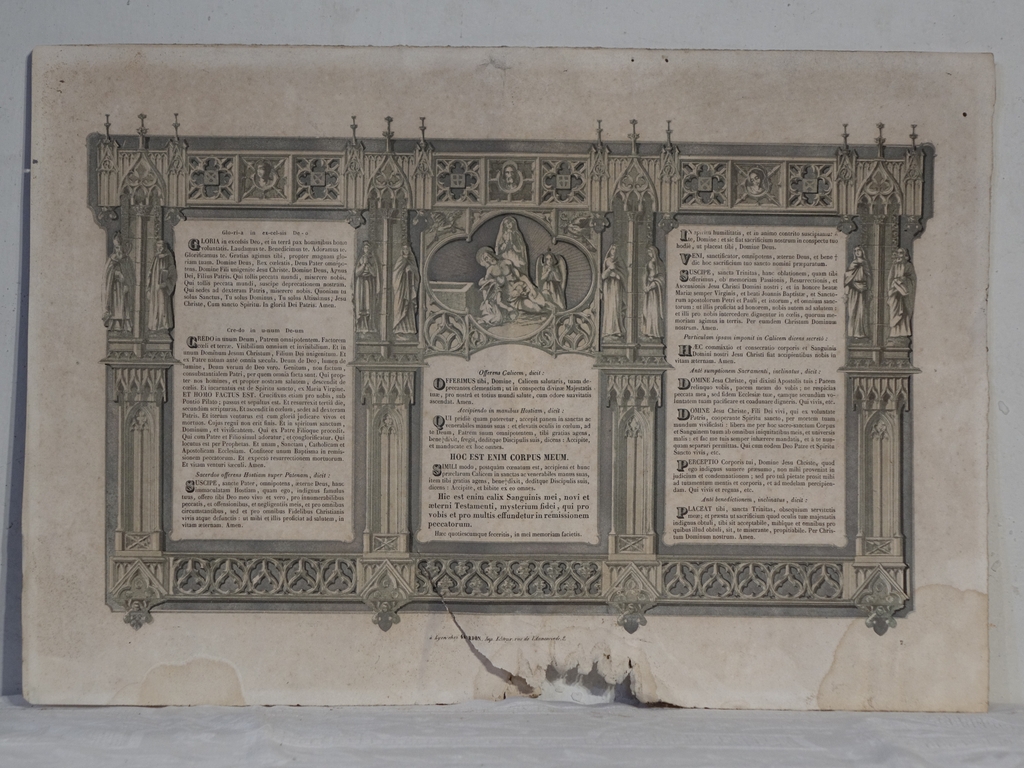 Gloria in excelsis Deo
GLORIA in excelsis Deo, et in terrâ pax hominibus bonæ
voluntatis. Laudamus te. Benedicimus te. Adoramus te.
Glorificamus te. Gratias agimus tibi, propter magnam glo-
riam tuam. Domine Deus, Rex cœlestis, Deus Pater omnipo-
tens. Domine Fili unigenite Jesu Christe. Domine Deus, Agnus
Dei, Filius Patris. Qui tollis peccata mundi, miserere nobis.
Qui tollis peccata mundi, suscipe deprecationem nostram.
Qui sedes ad dexteram Patris, miserere nobis. Quoniam tu
solus Sanctus, Tu solus Dominus, Tu solus Altissimus, Jesu
Christe, Cum sancto Spiritu. In gloriâ Dei Patris. Amen.
Credo in unum Deum
CREDO in unum Deum, Patrem omnipotentem. Factorem
cœli et terræ. Visibilium omnium et invisibilium. Et in
unum Dominum Jesum Christum, Filium Dei unigenitum. Et
ex Patre natum ante omnia sæcula. Deum de Deo, lumen de
lumine, Deum verum de Deo vero. Genitum, non factum,
consubstantialem Patri, per quem omnia facta sunt. Qui prop-
ter nos homines, et propter nostram salutem, descendit de
cœlis. Et incarnatus est de Spiritu sancto, ex Maria Virgine,
ET HOMO FACTUS EST. Crucifixus etiam pro nobis, sub
Pontio Pilato; passus et sepultus est. Et resurrexit tertiâ die,
secundùm scripturas. Et ascendit in cœlum, sedet ad dexteram
Patris. Et iterum venturus est cum gloriâ judicare vivos et
mortuos. Cujus regni non erit finis. Et in spiritum sanctum
Dominum, et vivificantem. Qui ex Patre Filioque procedit.
Qui cum Patre et Filio simul adoratur, et conglorificatur. Qui
locutus est per Prophetas. Et unam, Sanctam, Catholicam et
Apostolicam Ecclesiam. Confiteor unum Baptisma in remissi-
onem peccatorum. Et expecto resurrectionem mortuorum.
Et vitam venturi sæculi. Amen.
Sacerdos offerens Hostiam super Patenam, dicit :
SUSCIPE, sancte Pater, omnipotens, æterne Deus, hanc
immaculatam Hostiam, quam ego, indignus famulus
tuus, offero tibi Deo meo vivo et vero, pro innumerabilibus
peccatis, et offensionibus, et negligentiis meis, et pro omnibus
circumstantibus, sed et pro omnibus Fidelibus Christianis
vivis atque defunctis : ut mihi et illis proficiat ad salutem, in
vitam æternam. Amen.
Offerens Calicem, dicit :
OFFERIMUS tibi, Domine, Calicem salutaris, tuam de-
precantes clementiam; ut in conspectu divinæ Majestatis
tuæ, pro nostrâ et totius mundi salute, cum odore suavitatis
ascendat. Amen.
Accipiendo in manibus Hostiam, dicit :
QUI pridiè quàm pateretur, accepit panem in sanctas ac
venerabiles manus suas; et elevatis oculis in cœlum, ad
te Deum, Patrem suum omnipotentem, tibi gratias agens,
bene†dixit, fregit, deditque Discipulis suis, dicens : Accipite,
et manducate ex hoc omnes.
HOC EST ENIM CORPUS MEUM.
SIMILI modo, postquàm cœnatum est, accipiens et hunc
præclarum Calicem in sanctas ac venerabiles manus suas,
item tibi gratias agens, bene†dixit, deditque Discipulis suis,
dicens : Accipite, et bibite ex eo omnes.
Hic est enim calix Sanguinis mei, novi et
æterni Testamenti, mysterium fidei, qui pro
vobis et pro multis effundetur in remissionem
peccatorum.
Hæc quotiescumque feceritis, in mei memoriam facietis.
IN spiritu humilitatis, et in animo contrito suscipiamur à
te, Domine : et sic fiat sacrificium nostrum in conspectu tuo
hodiè, ut placeat tibi, Domine Deus.
VENI, sanctificator, omnipotens, æterne Deus, et bene †
dic hoc sacrificium tuo sancto nomini præparatum.
SUSCIPE, sancta Trinitas, hanc oblationem, quam tibi
offerimus, ob memoriam Passionis, Resurrectionis, et
Ascensionis Jesu Christi Domini nostri; et in honore beatæ
Mariæ semper Virginis, et beati Joannis Baptistæ, et Sancto-
rum apostolorum Petri et Pauli, et istorum, et omnium sanc-
torum : ut illis proficiat ad honorem, nobis autem ad salutem;
et illi pro nobis intercedere dignentur in cœlis, quorum me-
moriam agimus in terris. Per eumdem Christum Dominum
nostrum. Amen.
Particulam ipsam imponit in Calicem dicens secretò :
HÆC commixtio et consecratio corporis et Sanguinis
Domini nostri Jesu Christi fiat accipientibus nobis in
vitam æternam. Amen.
Anti sumptionem Sacramenti, inclinatus, dicit :
DOMINE Jesu Christe, qui dixisti Apostolis tuis : Pacem
relinquo vobis, pacem meam do vobis; ne respicias
peccata mea, sed fidem Ecclesiæ tuæ, eamque secundùm vo-
luntatem tuam pacificare et coadunare digneris. Qui vivis, etc.
DOMINE Jesu Christe, Fili Dei vivi, qui ex voluntate
Patris, cooperante Spiritu sancto, per mortem tuam
mundum vivificasti : libera me per hoc sacro-sanctum Corpus
et Sanguinem tuum ab omnibus iniquitatibus meis, et universis
malis : et fac me tuis semper inhærere mandatis, et à te num-
quàm separari permittas. Qui cum eodem Deo Patre et Spiritu
Sancto vivis, etc.
PERCEPTIO Corporis tui, Domine Jesu Christe, quod
ego indignus sumere præsumo, non mihi proveniat in
judicium et condemnationem; sed pro tuâ pietate prosit mihi
ad tutamentum mentis et corporis, et ad medelam percipien-
dam. Qui vivis et regnas, etc.
Anti benedictionem, inclinatus, dicit :
PLACEAT tibi, sancta Trinitas, obsequium servitutis
meæ; et præsta ut sacrificium quod oculis tuæ majestatis
indignus obtuli, tibi sit acceptabile, mihique et omnibus pro
quibus illud obtuli, sit, te miserante, propitiabile. Per Chris-
tum Dominum nostrum. Amen.
à Lyon chez Imp. Editeur rue de